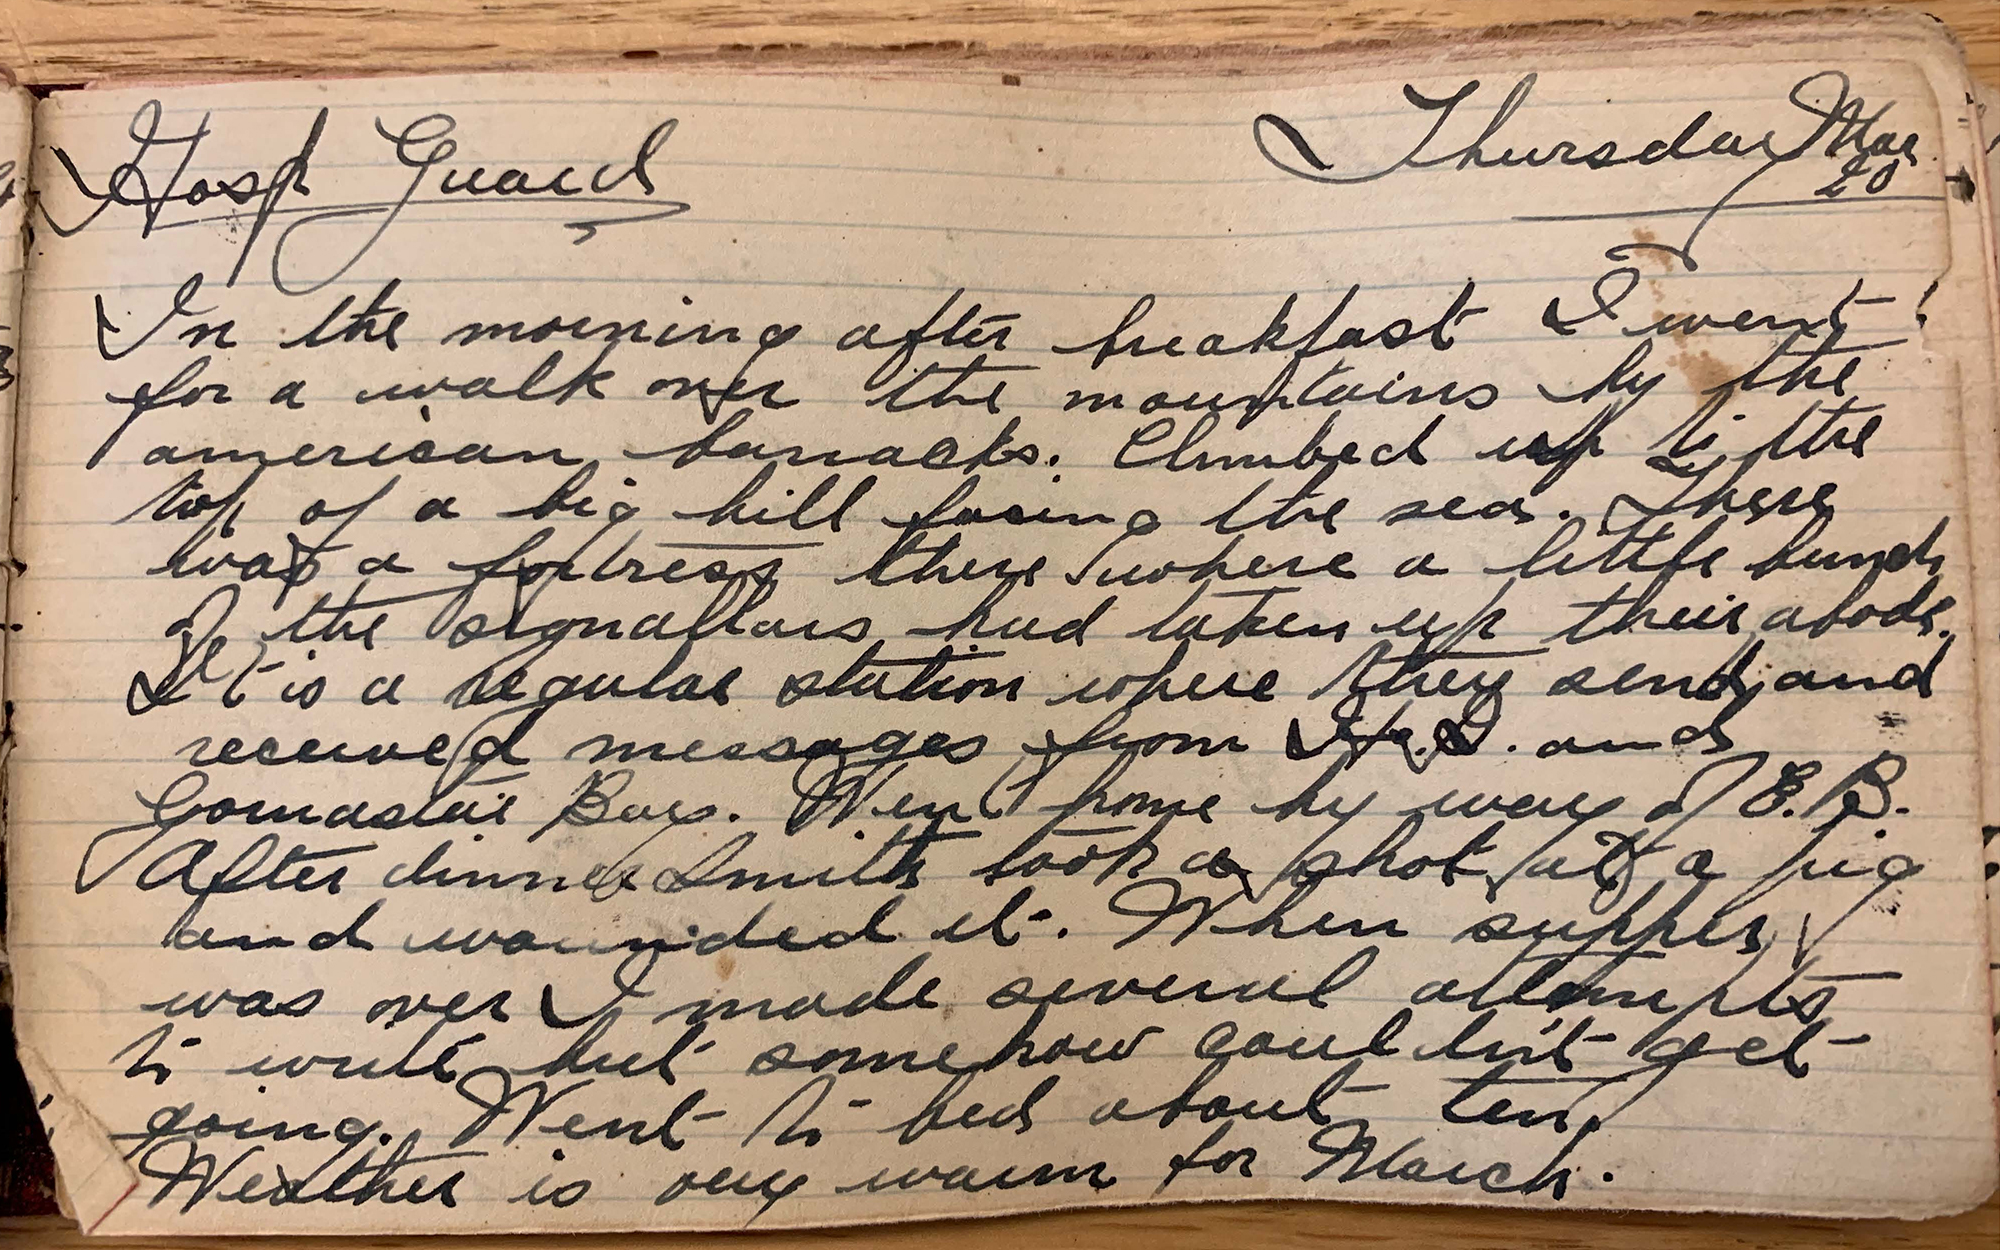 Hosp Guard Thursday Mar 20
In the morning after breakfast I went
for a walk over the mountains by the
american barracks. Climbed up to the
top of a big hill facing the sea. There
was a fortress there where a little bunch
of the signallars had taken up their abode.
It is a regular station where they send and
received messages from and
Gornastai Bay. Went home by way of E.B.
After dinner Smith took a shot at a pig
and wounded it. When supper
was over I made several attempts
to write but somehow could'nt get
going. Went to bed about ten.
Weather is very warm for March.